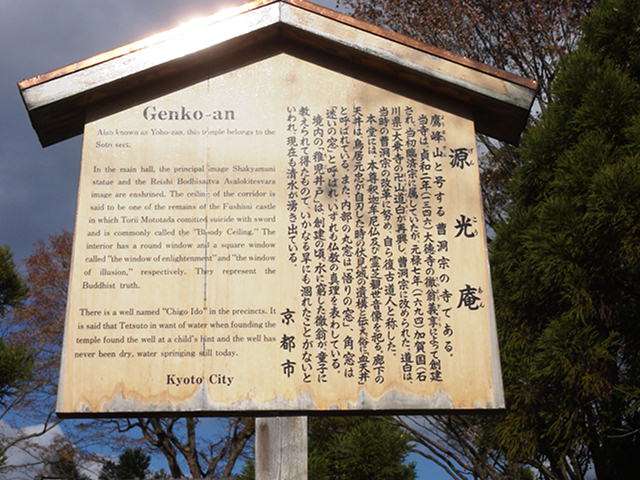 Genko-an
Also known as Yoho-zan, this temple belongs to the
Soto sect.
In the main hall, the principal image Shakyamuni
statue and the Reishi Bodhisattva Avalokitesvara
image are enshrined. The ceiling of the corridor is
said to be one of the remains of the Fushimi castle
in which Torii Mototada comitted suicide with sword
and is commonly called the "Bloody Ceiling." The
interior has a round window and a square window
called "the window of enlightenment" and "the window
of illusion," respectively. They represent the
Buddhist truth.
There is a well named "Chigo Ido" in the precincts. It
is said that Tetsuto in want of water when founding the
temple found the well at a child's hint and the well has
never been dry, water springing still today.
Kyoto City
源光庵
鷹峰山と号する曹洞宗の寺である。
当寺は、貞和二年(一三四六)大徳寺の徹翁義亨によって創建
され、当初臨済宗に属していたが、元禄七年(一六九四)加賀国(石
川県)大乗寺の卍山道白が再興し、曹洞宗に改められた。道白は、
当時の曹洞宗の改革に努め、自ら復古道人と称した。
本堂には、本尊釈迦牟尼仏及び霊芝観世音像を祀る。廊下の
天井は、鳥居元忠が自刃した時の伏見城の遺構と伝え、俗に「血天井」
と呼ばれている。また、内部の丸窓は「悟りの窓」、角窓は
「迷いの窓」と呼ばれ、いずれも仏教の真理を表わしている。
境内の「稚児井戸」は、創建の頃、水に窮した徹翁が童子に
教えられて得たもので、いかなる旱にも涸れたことがないと
いわれ、現在も清水が湧き出ている。
京都市